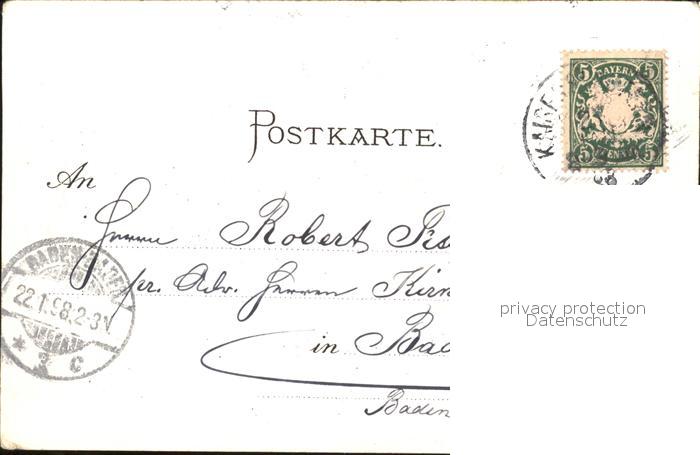 5 BAYERN 5
5 PFENNIG 5
POSTKARTE.
An
Herrn Robert
pr. Adr. Herrn Kirn
in Bad
Baden
BADEN-BADEN
22.1.98.2-3N
* 3 C
privacy protection
Datenschutz